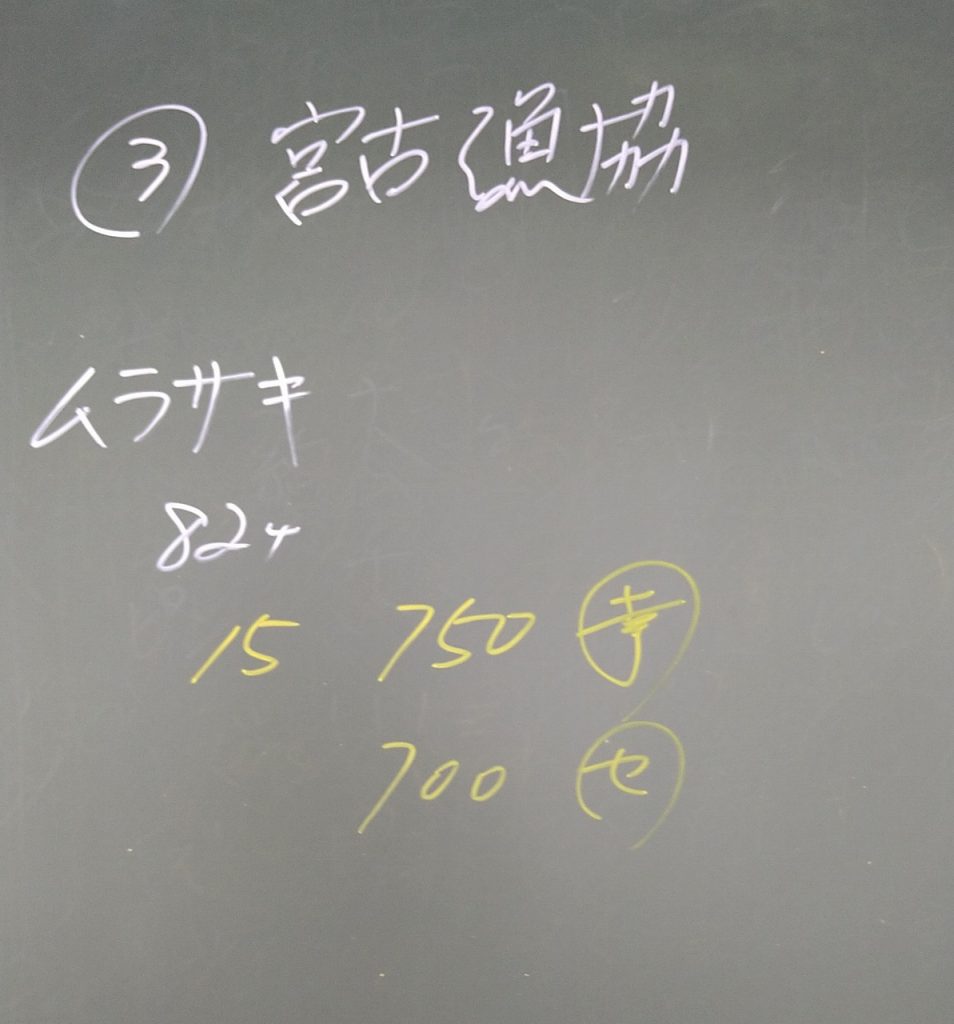 ③ 宮古漁協
ムラサキ
824
15 750
700 セ